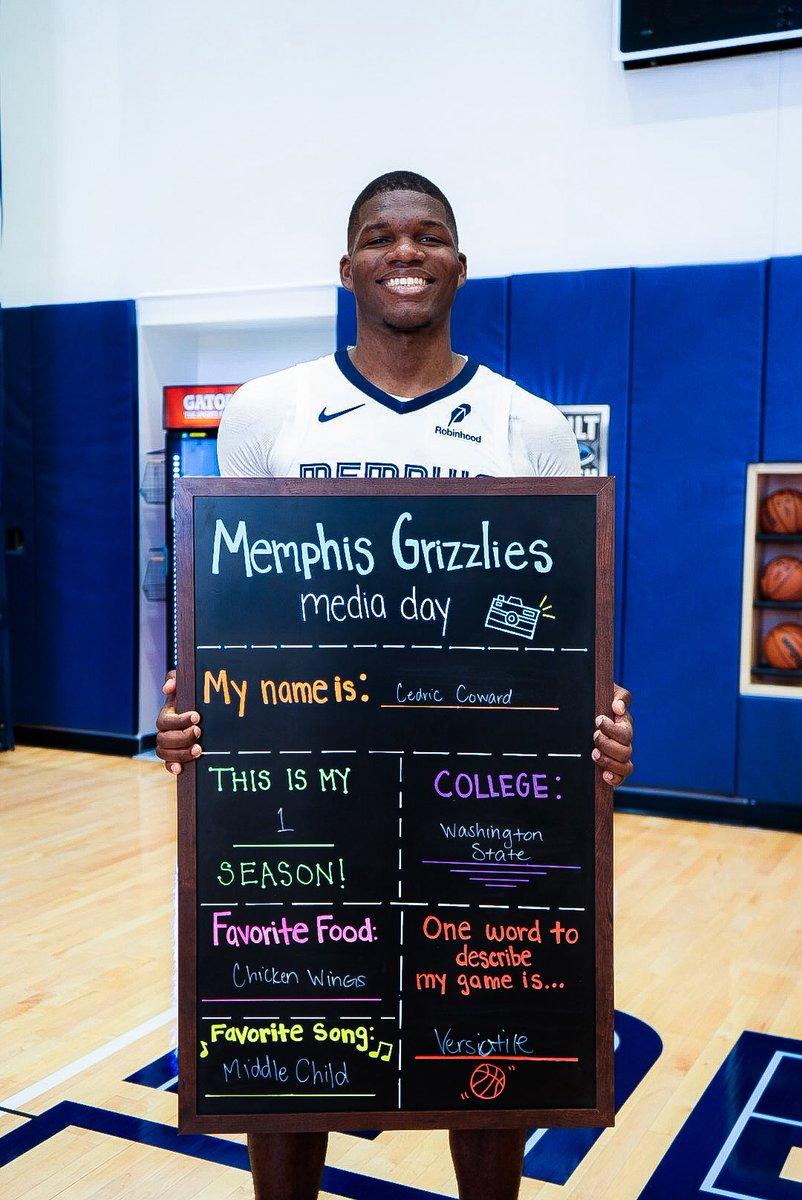 GATO
Robinhood
MEMPHIS
Memphis Grizzlies
media day
My name is: Cedric Coward
THIS IS MY
1
SEASON!
COLLEGE:
Washington
State
Favorite Food:
Chicken Wings
Favorite Song:
Middle Child
One word to
describe
my game is...
Versiatile